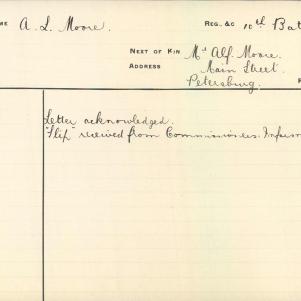 ME A. L. Moore. REG. &C 10th Bat
NEXT OF KIN Mr Alf. Moore.
ADDRESS Main Street.
Petersburg.
Letter acknowledged.
"Slip" received from Commissioners: